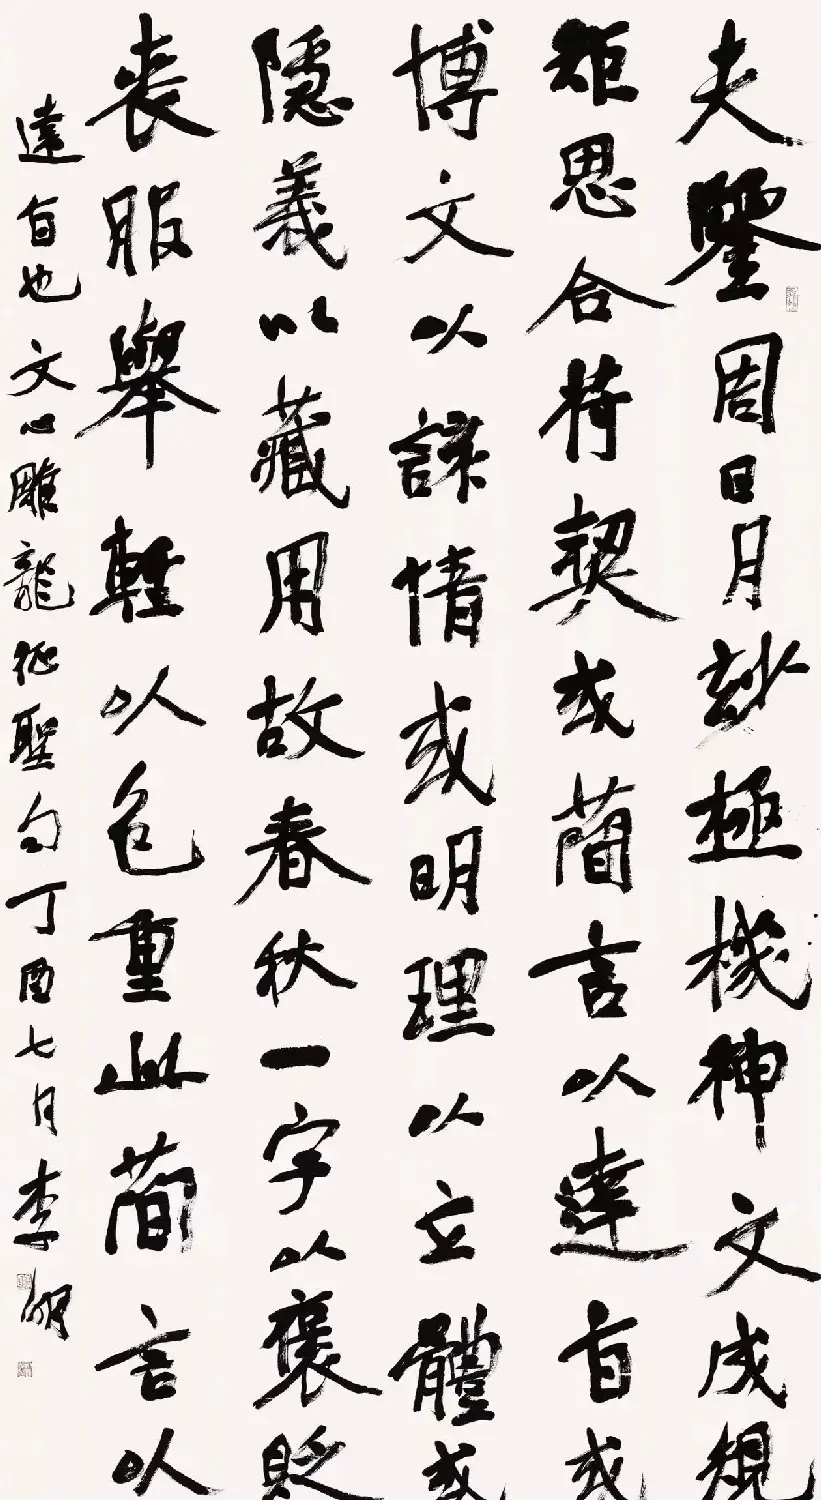 夫鑒周日月玅極機神文成規
矩思合符契或簡言以達旨或
博文以該情或明理以立體或
隱義以藏用故春秋一字以褒貶
喪服舉輕以包重此簡言以
達旨也文心雕龍征聖句丁酉七月李